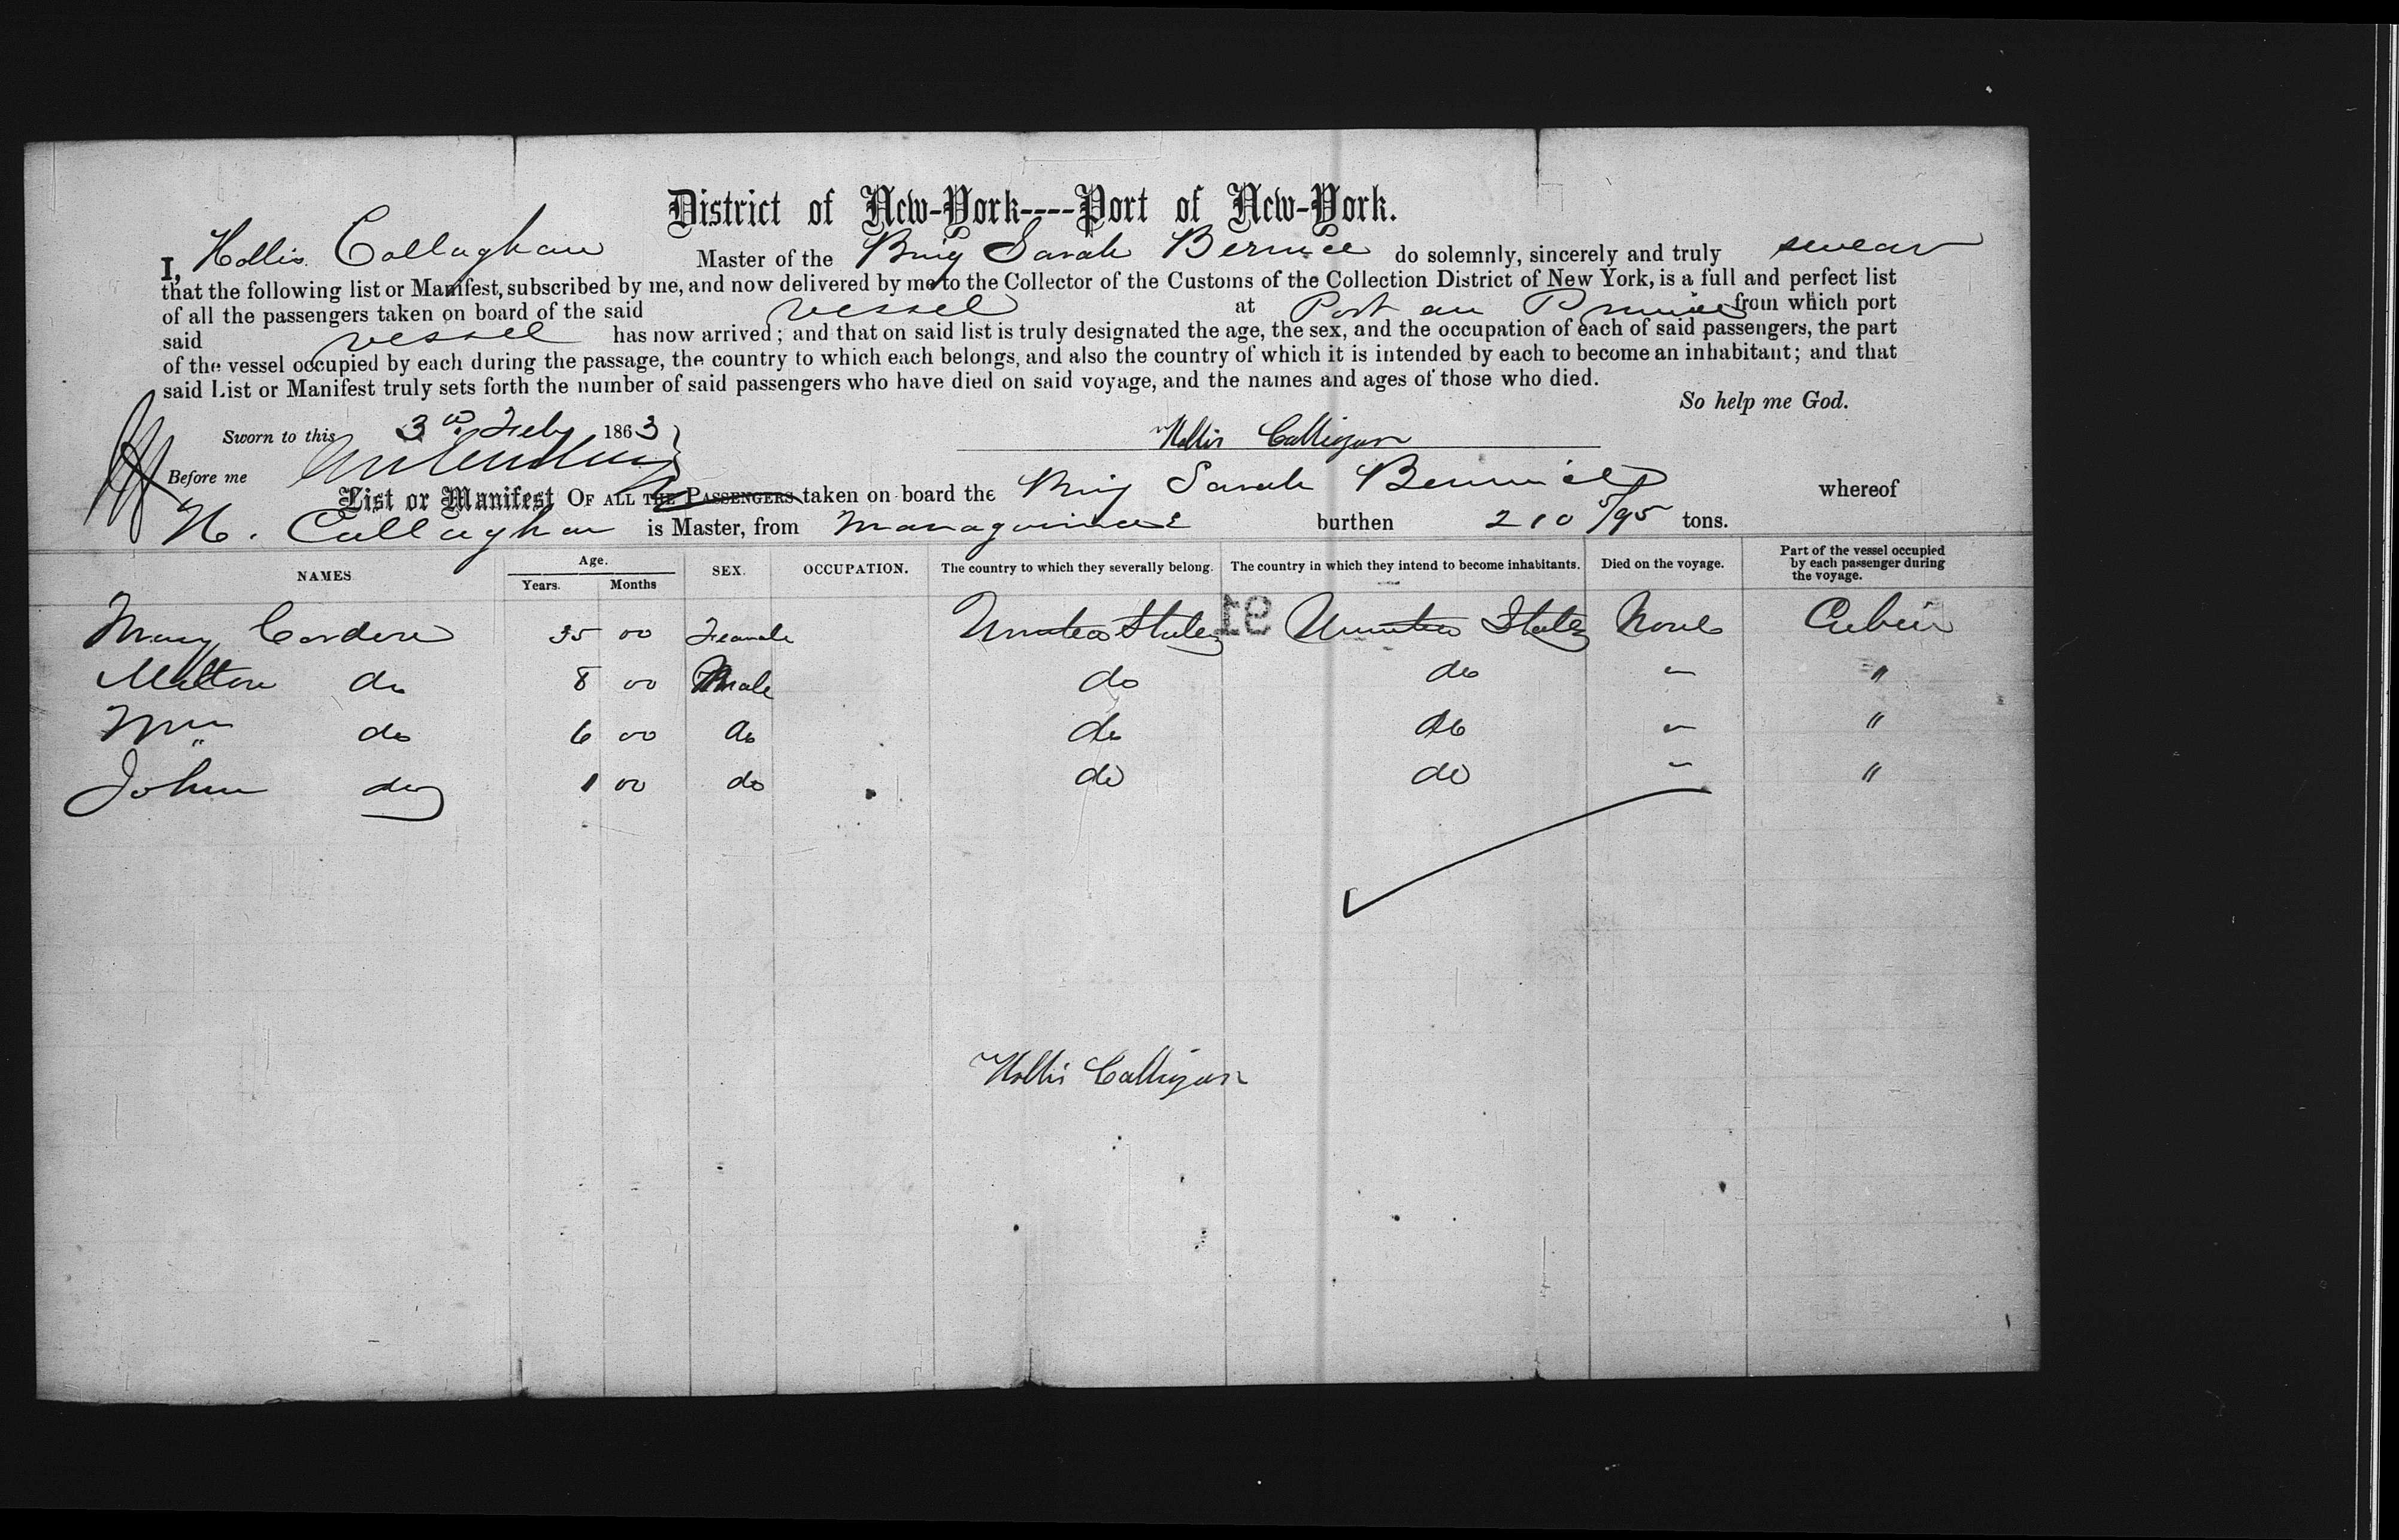 District of New-York----Port of New-York.
I, Hollis Callaghan Master of the Brig Sarah Bernice do solemnly, sincerely and truly swear
that the following list or Manifest, subscribed by me, and now delivered by me to the Collector of the Customs of the Collection District of New York, is a full and perfect list
of all the passengers taken on board of the said vessel at Port au Prince from which port
said vessel has now arrived; and that on said list is truly designated the age, the sex, and the occupation of each of said passengers, the part
of the vessel occupied by each during the passage, the country to which each belongs, and also the country of which it is intended by each to become an inhabitant; and that
said List or Manifest truly sets forth the number of said passengers who have died on said voyage, and the names and ages of those who died.
So help me God.
Sworn to this 3rd Feby 1863
Hollis Calligan
Before me
List or Manifest OF ALL THE PASSENGERS taken on board the Brig Sarah Bernice whereof
H. Callaghan is Master, from burthen 210 5/95 tons.
NAMES Age. Years. Months SEX. OCCUPATION. The country to which they severally belong. The country in which they intend to become inhabitants. Died on the voyage. Part of the vessel occupied by each passenger during the voyage.
Mary Cordere 35 00 Female United States 91 United States None Cabin
Milton do 8 00 Male do do " "
Wm do 6 00 do do do " "
John do 1 00 do do do " "
Hollis Calligan